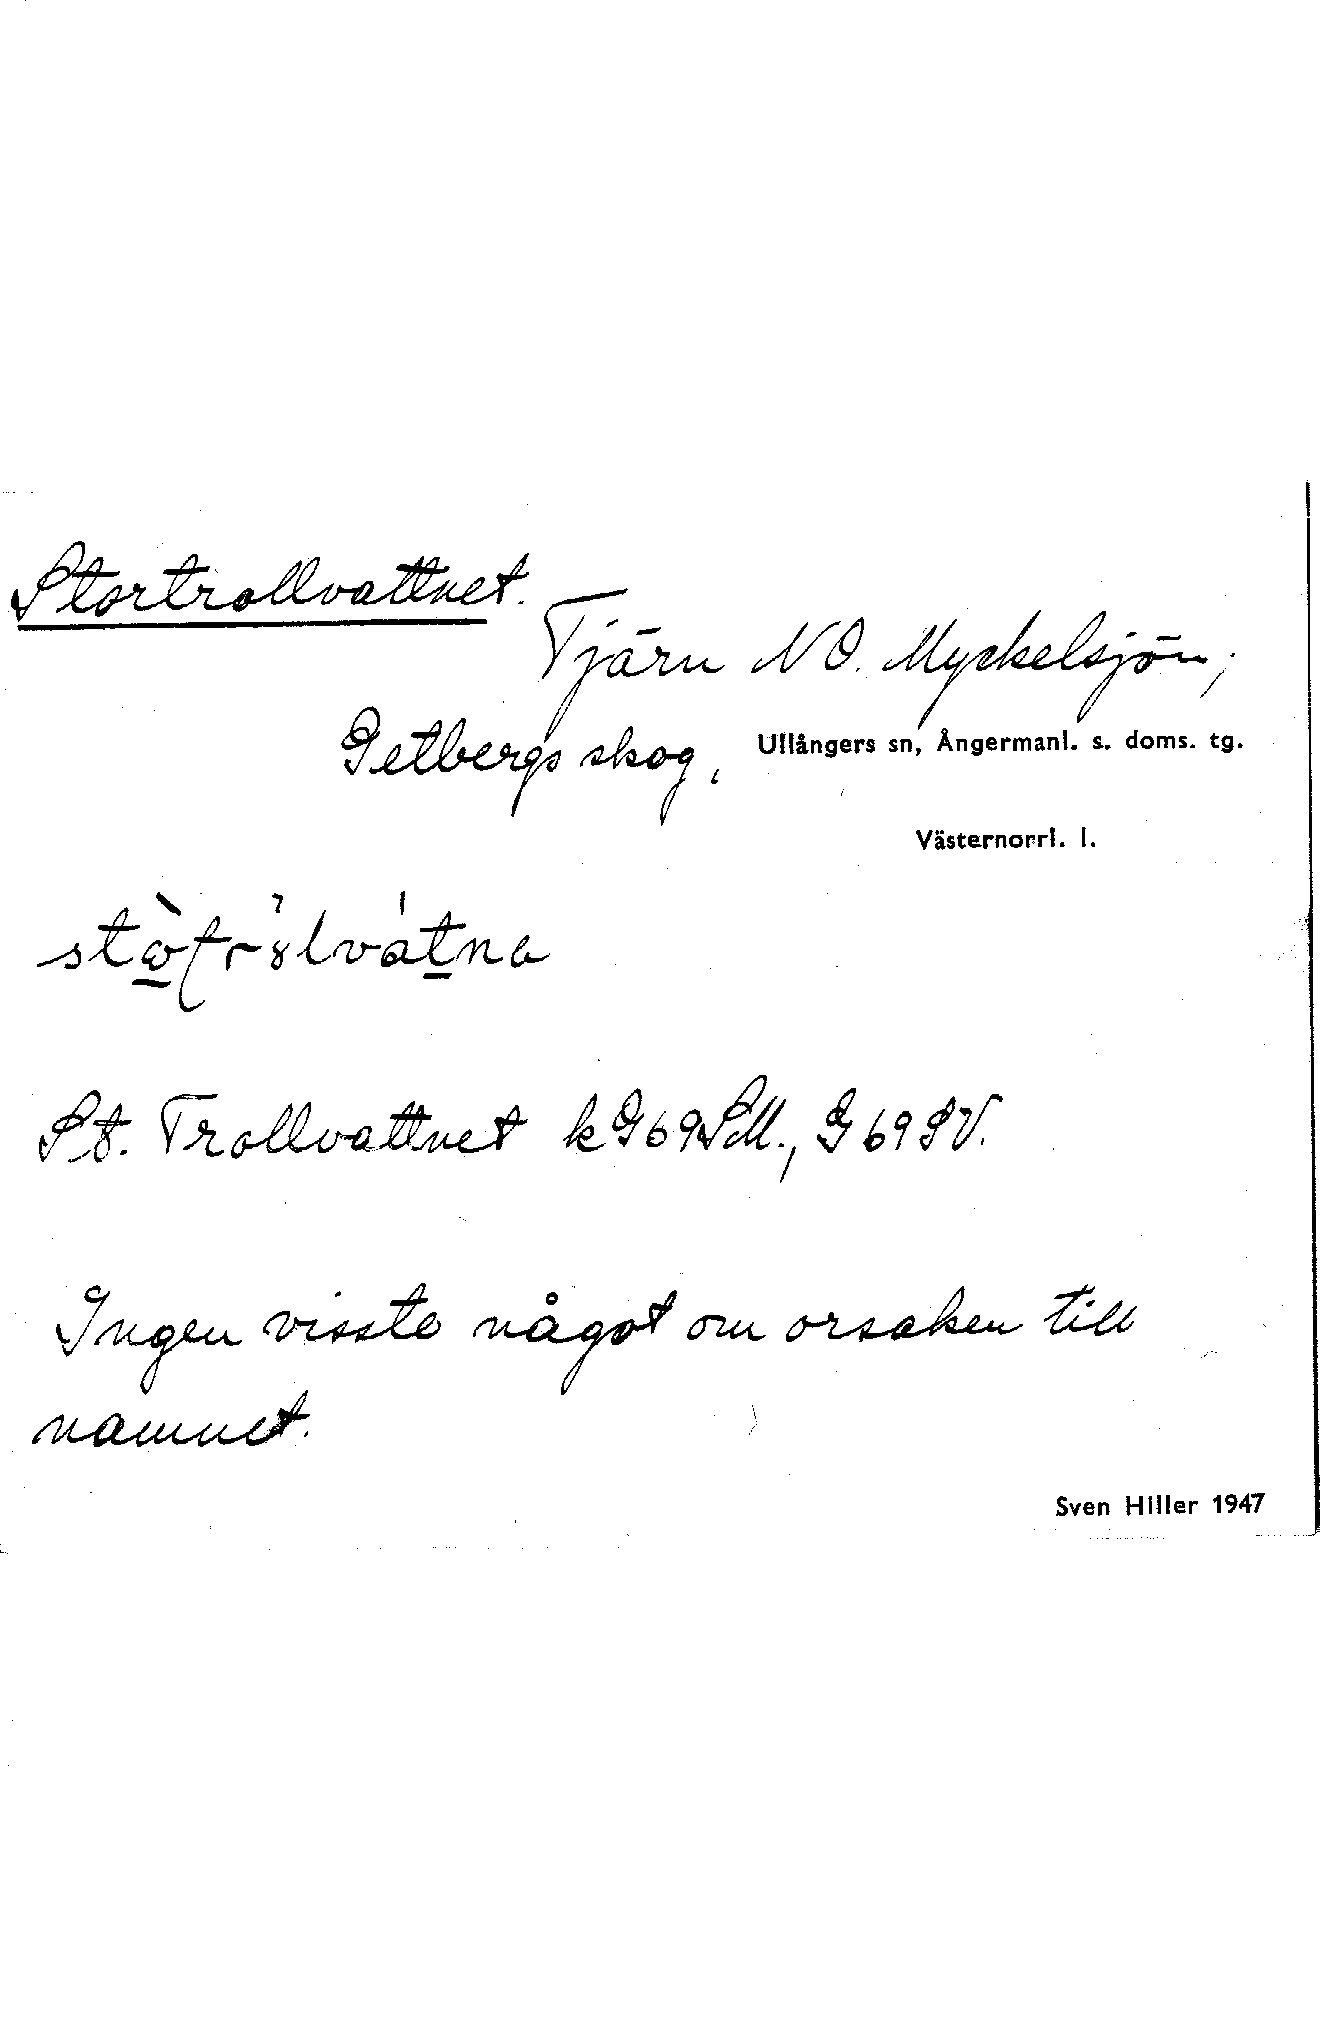 Stortrollvattnet.
Tjärn NO. Myckelsjön;
Getbergs skog, Ullångers sn, Ångermanl. s. doms. tg.
Västernorrl. l.
St. Trollvattnet k G69SM., G69SV.
Ingen visste något om orsaken till
namnet.
Sven Hiller 1947